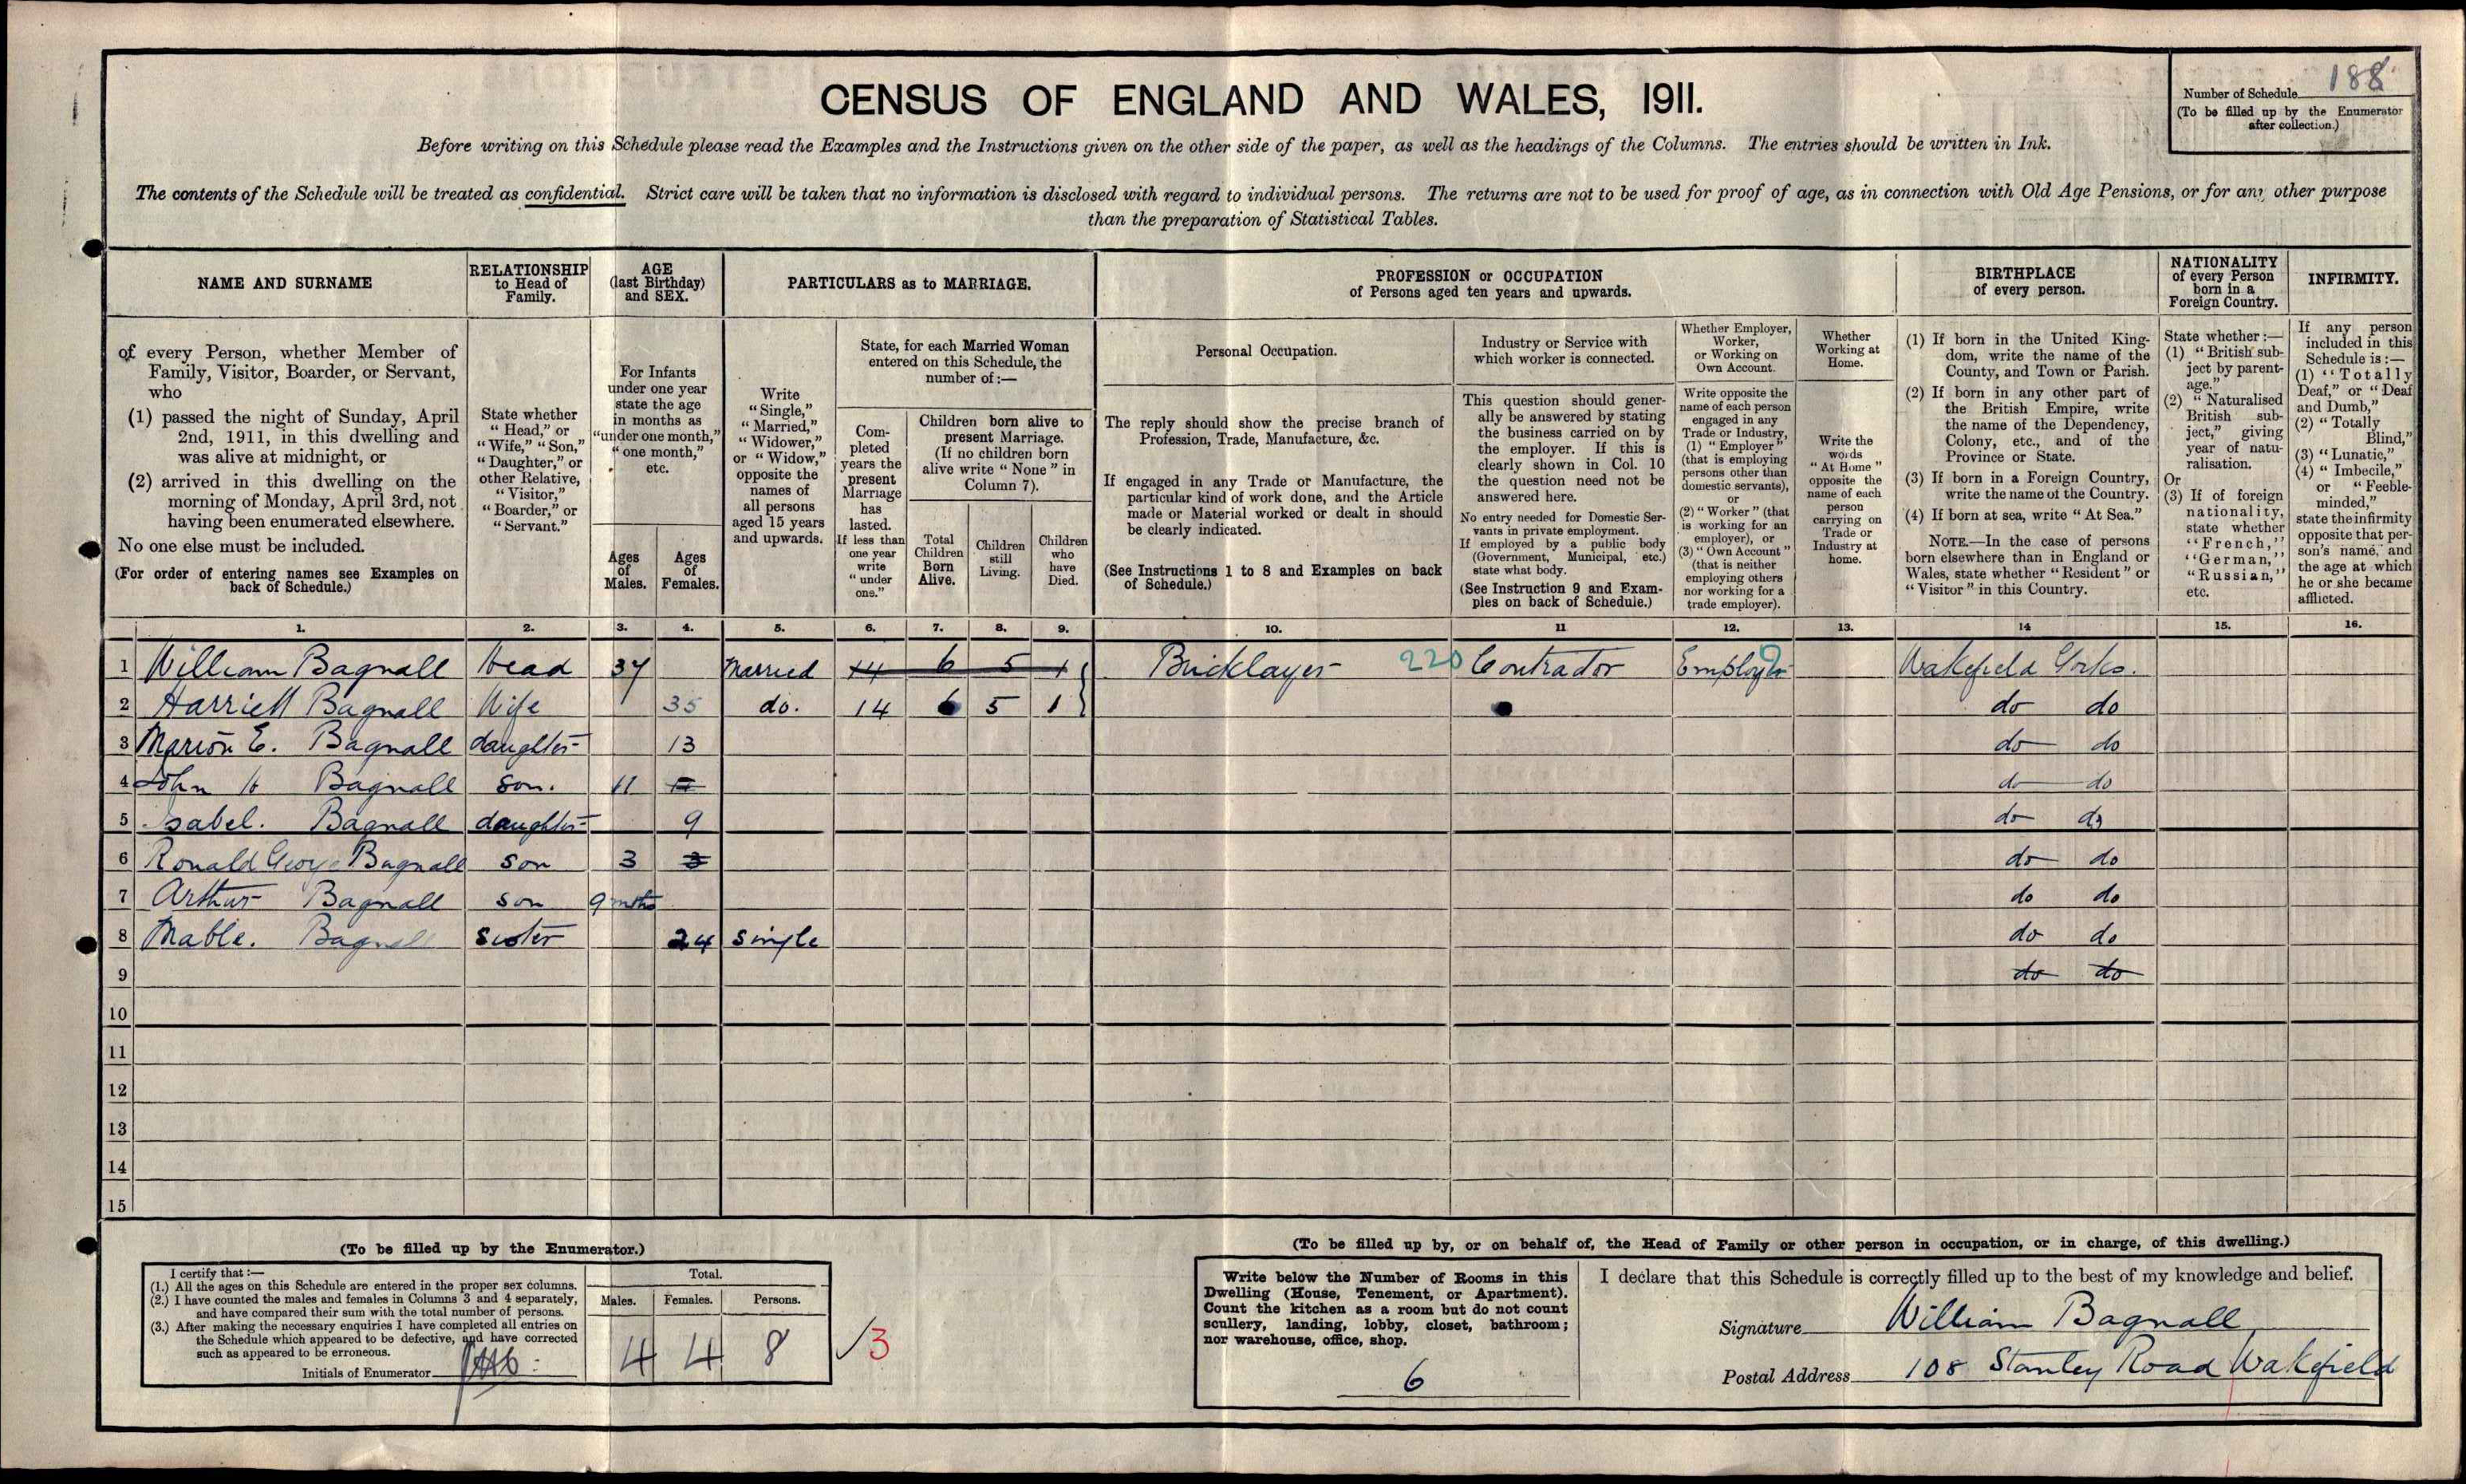 188
Number of Schedule
(To be filled up by the Enumerator
after collection.)
CENSUS OF ENGLAND AND WALES, 1911.
Before writing on this Schedule please read the Examples and the Instructions given on the other side of the paper, as well as the headings of the Columns. The entries should be written in Ink.
The contents of the Schedule will be treated as confidential. Strict care will be taken that no information is disclosed with regard to individual persons. The returns are not to be used for proof of age, as in connection with Old Age Pensions, or for any other purpose
than the preparation of Statistical Tables.
NAME AND SURNAME
of every Person, whether Member of
Family, Visitor, Boarder, or Servant,
who
(1) passed the night of Sunday, April
2nd, 1911, in this dwelling and
was alive at midnight, or
(2) arrived in this dwelling on the
morning of Monday, April 3rd, not
having been enumerated elsewhere.
No one else must be included.
(For order of entering names see Examples on
back of Schedule.)
RELATIONSHIP
to Head of
Family.
State whether
"Head," or
"Wife," "Son,"
"Daughter," or
other Relative,
"Visitor,"
"Boarder," or
"Servant."
AGE
(last Birthday)
and SEX.
For Infants
under one year
state the age
in months as
"under one month,"
"one month,"
etc.
Ages
of
Males.
Ages
of
Females.
PARTICULARS as to MARRIAGE.
Write
"Single,"
"Married,"
"Widower,"
or "Widow,"
opposite the
names of
all persons
aged 15 years
and upwards.
State, for each Married Woman
entered on this Schedule, the
number of:—
Com-
pleted
years the
present
Marriage
has
lasted.
If less than
one year
write
"under
one."
Children born alive to
present Marriage.
(If no children born
alive write "None" in
Column 7).
Total
Children
Born
Alive.
Children
still
Living.
Children
who
have
Died.
PROFESSION or OCCUPATION
of Persons aged ten years and upwards.
Personal Occupation.
The reply should show the precise branch of
Profession, Trade, Manufacture, &c.
If engaged in any Trade or Manufacture, the
particular kind of work done, and the Article
made or Material worked or dealt in should
be clearly indicated.
(See Instructions 1 to 8 and Examples on back
of Schedule.)
Industry or Service with
which worker is connected.
This question should gener-
ally be answered by stating
the business carried on by
the employer. If this is
clearly shown in Col. 10
the question need not be
answered here.
No entry needed for Domestic Ser-
vants in private employment.
If employed by a public body
(Government, Municipal, etc.)
state what body.
(See Instruction 9 and Exam-
ples on back of Schedule.)
Whether Employer,
Worker,
or Working on
Own Account.
Write opposite the
name of each person
engaged in any
Trade or Industry,
(1) "Employer"
(that is employing
persons other than
domestic servants),
or
(2) "Worker" (that
is working for an
employer), or
(3) "Own Account"
(that is neither
employing others
nor working for a
trade employer).
Whether
Working at
Home.
Write the
words
"At Home"
opposite the
name of each
person
carrying on
Trade or
Industry at
home.
BIRTHPLACE
of every person.
(1) If born in the United King-
dom, write the name of the
County, and Town or Parish.
(2) If born in any other part of
the British Empire, write
the name of the Dependency,
Colony, etc., and of the
Province or State.
(3) If born in a Foreign Country,
write the name of the Country.
(4) If born at sea, write "At Sea."
NOTE.—In the case of persons
born elsewhere than in England or
Wales, state whether "Resident" or
"Visitor" in this Country.
NATIONALITY
of every Person
born in a
Foreign Country.
State whether:—
(1) "British sub-
ject by parent-
age."
(2) "Naturalised
British sub-
ject," giving
year of natu-
ralisation.
Or
(3) If of foreign
nationality,
state whether
"French,"
"German,"
"Russian,"
etc.
INFIRMITY.
If any person
included in this
Schedule is:—
(1) "Totally
Deaf," or "Deaf
and Dumb,"
(2) "Totally
Blind,"
(3) "Lunatic,"
(4) "Imbecile,"
or "Feeble-
minded,"
state the infirmity
opposite that per-
son's name, and
the age at which
he or she became
afflicted.
1. 2. 3. 4. 5. 6. 7. 8. 9. 10. 11 12. 13. 14 15. 16.
1 William Bagnall Head 37 Married 14 6 5 1 Bricklayer 220 Contractor Employer Wakefield Yorks.
2 Harriett Bagnall Wife 35 do. 14 6 5 1 do do
3 Marion E. Bagnall daughter 13 do do
4 John H Bagnall son. 11 do do
5 Isabel. Bagnall daughter 9 do do
6 Ronald George Bagnall son 3 3 do do
7 Arthur Bagnall son 9 mths do do
8 Mable. Bagnall sister 24 single do do
9 do do
10
11
12
13
14
15
(To be filled up by the Enumerator.)
I certify that:—
(1.) All the ages on this Schedule are entered in the proper sex columns.
(2.) I have counted the males and females in Columns 3 and 4 separately,
and have compared their sum with the total number of persons.
(3.) After making the necessary enquiries I have completed all entries on
the Schedule which appeared to be defective, and have corrected
such as appeared to be erroneous.
Initials of Enumerator
Total.
Males. Females. Persons.
4 4 8
3
(To be filled up by, or on behalf of, the Head of Family or other person in occupation, or in charge, of this dwelling.)
Write below the Number of Rooms in this
Dwelling (House, Tenement, or Apartment).
Count the kitchen as a room but do not count
scullery, landing, lobby, closet, bathroom;
nor warehouse, office, shop.
6
I declare that this Schedule is correctly filled up to the best of my knowledge and belief.
Signature William Bagnall
Postal Address 108 Stanley Road Wakefield